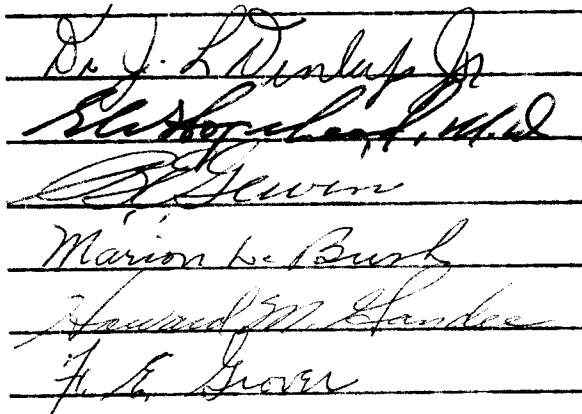 Dr. J. L. Dunlap Jr
M.D
Gewin
Marion L. Bush
Howard M. Sandee
F. E. Grover